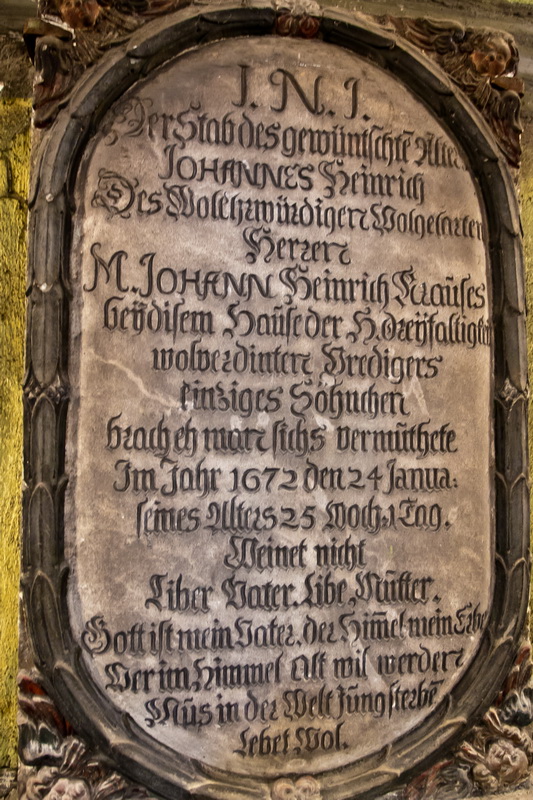 J. N. J.
Der Stab des gewüntschtē Alters
JOHANNES Heinrich
Des WolEhrwürdigen Wolgelarten
Herren
M. JOHANN Heinrich Krauses
beÿ disem Hause der H. Dreÿfaltigkeit
wolverdinten Predigers
einziges Söhnchen
brach eh man sichs vermuthete
Im Jahr 1672 den 24 Janua:
seines Alters 25 Woch. 1 Tag.
Weinet nicht
Liber Vater. Libe Mutter.
Gott ist mein Vater. der Him̄el mein Erbe
Wer im Himmel Alt wil werden
Mus in der Welt Jung sterbē
Lebet Wol.